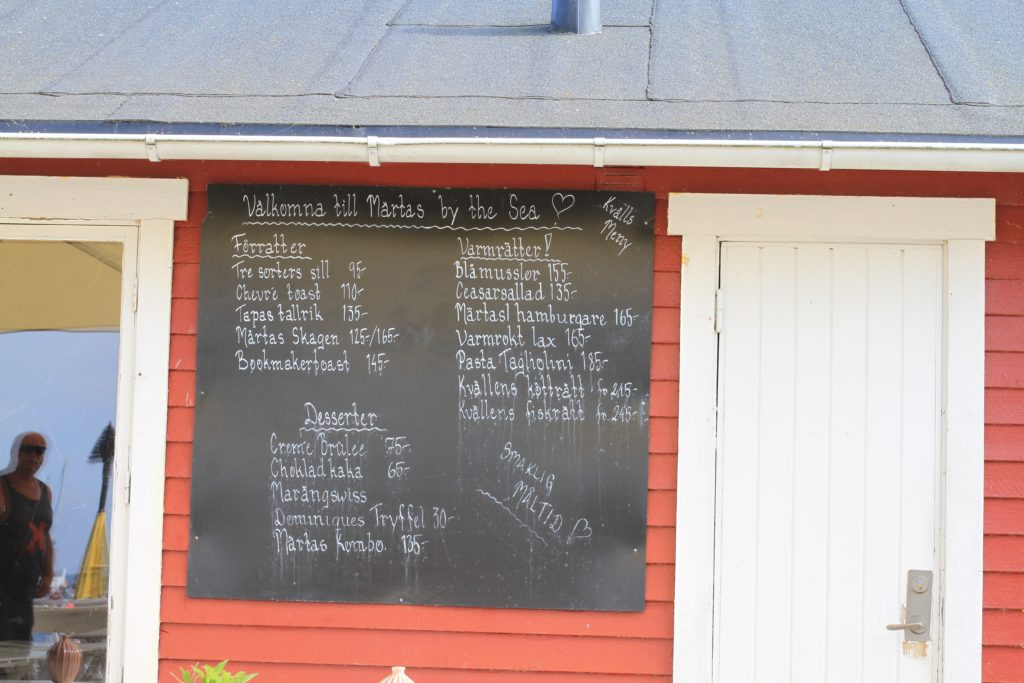 Välkomna till Märtas by the Sea
Kvälls
Meny
Förrätter
Tre sorters sill 95:-
Chevre toast 110:-
Tapas tallrik 135:-
Märtas Skagen 125:-/165:-
Bookmakertoast 145:-
Varmrätter!
Blåmusslor 155:-
Ceasarsallad 135:-
Märtas hamburgare 165:-
Varmrökt lax 165:-
Pasta Tagliolini 185:-
Kvällens kötträtt fr. 215:-
Kvällens fiskrätt fr. 245:-
Desserter
Creme Brûlee 75:-
Choklad kaka 65:-
Marängswiss
Dominiques Tryffel 30:-
Märtas Kombo. 135:-
SMAKLIG
MÅLTID